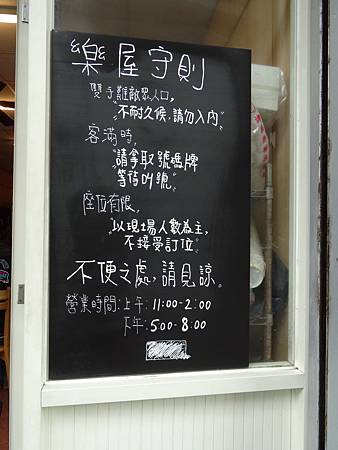 樂屋守則
雙手難敵眾人口,
"不耐久候,請勿入內"
客滿時,
"請拿取號碼牌
等待叫號"
座位有限,
"以現場人數為主,
不接受訂位"
不便之處,請見諒。
營業時間:上午:11:00-2:00
下午:5:00-8:00